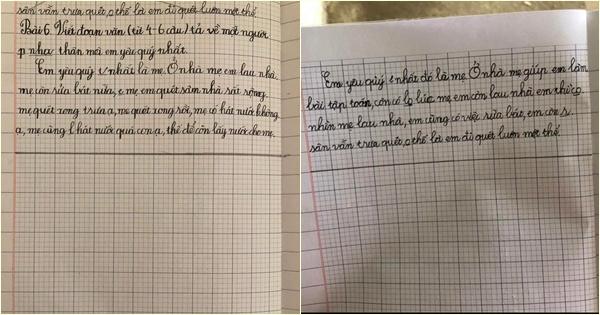 sân vẫn trưa quét, thế là em đi quét luôn một thể
Bài 6. Viết đoạn văn (từ 4-6 câu) tả về một người
p như thân mà em yêu quý nhất.
Em yêu quý nhất là mẹ. Ở nhà mẹ em lau nhà,
mẹ còn rửa bát nữa, mẹ em quét sân nhà rất rộng,
mẹ quét xong trưa ạ, mẹ quét xong rồi, mẹ có hát nước không
ạ, mẹ cũng hát nước quá con ạ, thế để con lấy nước cho mẹ.
Em yêu quý nhất đó là mẹ. Ở nhà mẹ giúp em làm
bài tập toán, còn có lúc mẹ em còn lau nhà em thức
nhìn mẹ lau nhà, em cũng có việc rửa bát, em còn
sân vẫn trưa quét, thế là em đi quét luôn một thể.